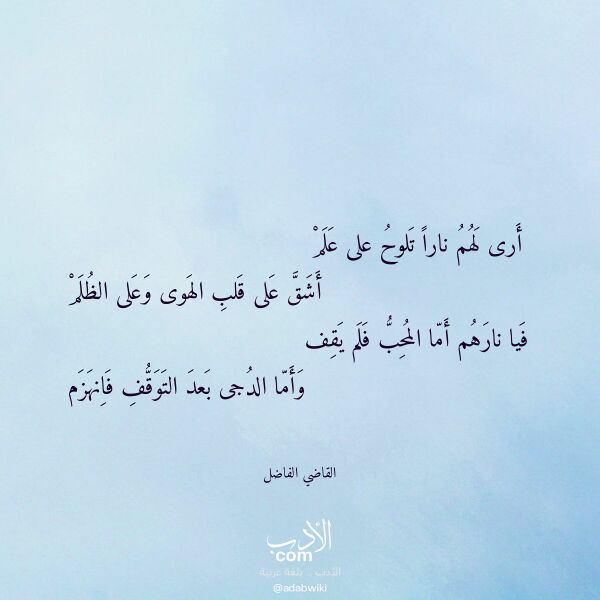 أَرى لَهُمُ ناراً تَلوحُ على عَلَمْ
أَشَقَّ عَلى قَلبِ الهَوى وَعَلى الظُلَمْ
فَيا نارَهُم أَمّا المُحِبُّ فَلَم يَقِف
وَأَمّا الدُجى بَعدَ التَوَقُّفِ فَاِنهَزَم
القاضي الفاضل
الأدب
com
الأدب .. بلغة عربية
@adabwiki